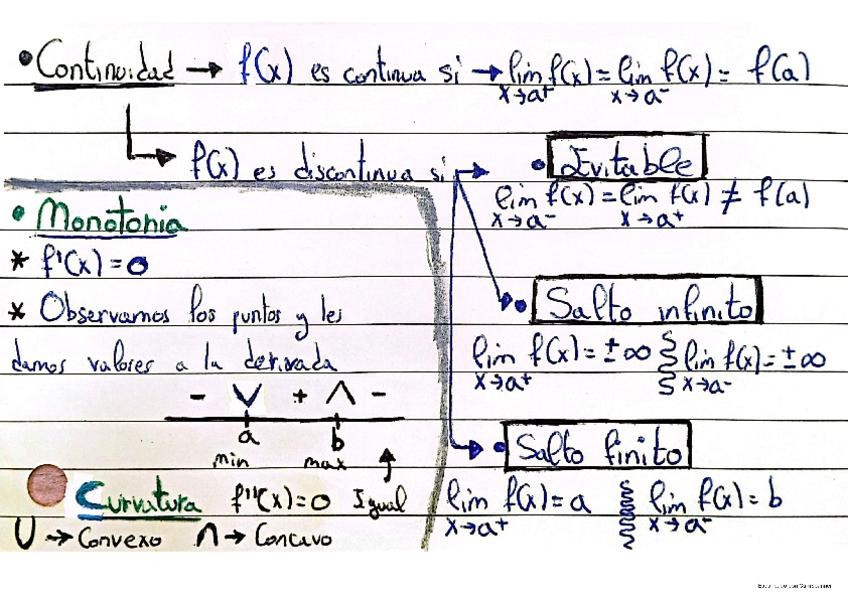 • Continuidad → f(x) es continua si → lim f(x) = lim f(x) = f(a)
x→a⁺ x→a⁻
f(x) es discontinua si → • Evitable
lim f(x) = lim f(x) ≠ f(a)
x→a⁻ x→a⁺
• Salto infinito
lim f(x) = ±∞ lim f(x) = ±∞
x→a⁺ x→a⁻
• Salto finito
lim f(x) = a lim f(x) = b
x→a⁺ x→a⁻
• Monotonia
* f'(x) = 0
* Observamos los puntos y les
damos valores a la derivada
- + -
a b
min max
Curvatura f''(x) = 0 Igual
∪ → Convexo ∩ → Concavo